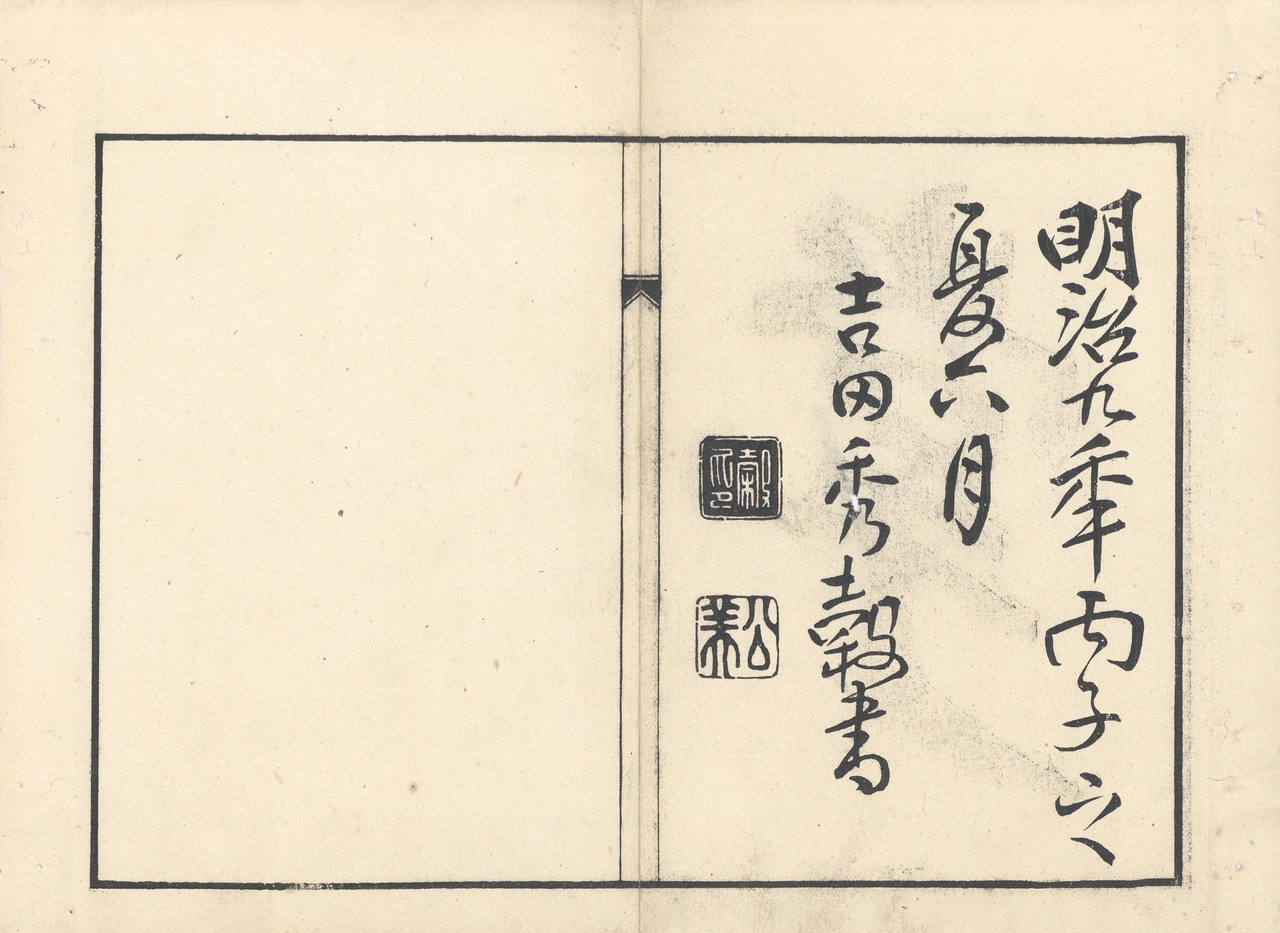 明治九年丙子之
夏六月
吉田秀穀書
穀印